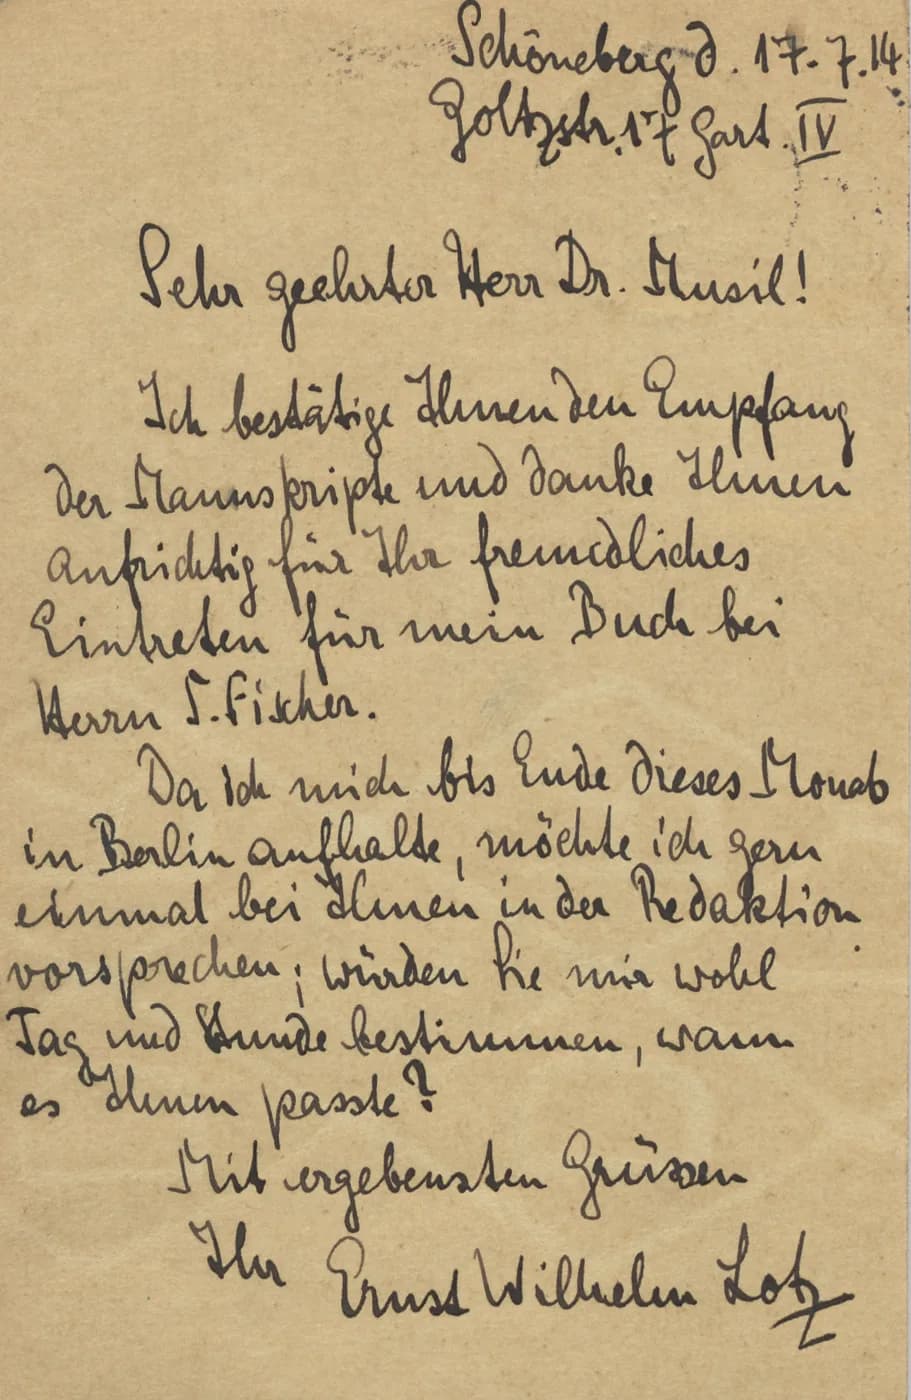 Schöneberg d. 17.7.14
Goltzstr. 17 Gart. IV
Sehr geehrter Herr Dr. Musil!
Ich bestätige Ihnen den Empfang
der Manuskripte und danke Ihnen
aufrichtig für Ihr freundliches
Eintreten für mein Buch bei
Herrn S. Fischer.
Da ich mich bis Ende dieses Monats
in Berlin aufhalte, möchte ich gern
einmal bei Ihnen in der Redaktion
vorsprechen; würden Sie mir wohl
Tag und Stunde bestimmen, wann
es Ihnen passte?
Mit ergebensten Grüssen
Ihr Ernst Wilhelm Lotz